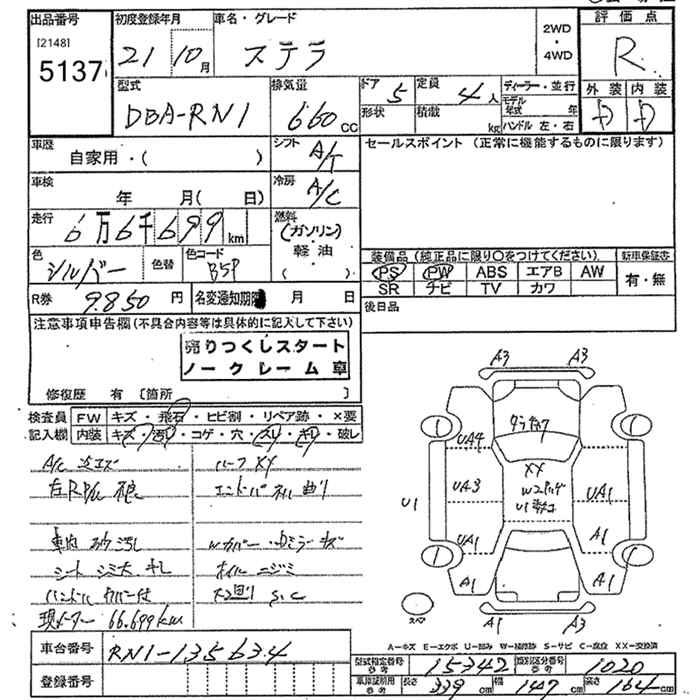 出品番号
[2148]
5137
初度登録年月
21 10月
車名・グレード
ステラ
2WD
・
4WD
評価点
R
外装 内装
D D
型式
DBA-RN1
排気量
660cc
ドア 5
形状
定員 4人
積載 kg
ディーラー・並行
モデル年式 年
ハンドル 左・右
車歴
自家用・( )
シフト A/T
セールスポイント (正常に機能するものに限ります)
車検
年 月( 日)
冷房 A/C
走行
6万6千699km
燃料
(ガソリン)
軽油
( )
色
シルバー
色替
色コード
B5P
装備品 (純正品に限り○をつけてください)
PS PW ABS エアB AW
SR ナビ TV カワ
新車保証書
有・無
R券 9.850円
名変通知期限 月 日
後日品
注意事項申告欄 (不具合内容等は具体的に記入して下さい)
売りつくしスタート
ノークレーム車
修復歴 有 [箇所 ]
検査員
記入欄
FW キズ・飛石・ヒビ割・リペア跡・×要
内装 キズ・汚レ・コゲ・穴・スレ・キレ・破レ
ハーフ XX
車内
シート シミ大
ハンドル カバー付
現メーター 66.699km
S.C
A3 A3
UA4
XX
U1
UA3
UA1
UA1
A1
A1
A1
A1 A3
A=キズ E=エクボ U=凹み W=補修跡 S=サビ C=腐食 XX=交換済
車台番号
RN1-135634
登録番号
型式指定番号 参考 15342
類別区分番号 参考 1020
車庫証明用 参考 長さ 339cm 幅 147cm 高さ 164cm